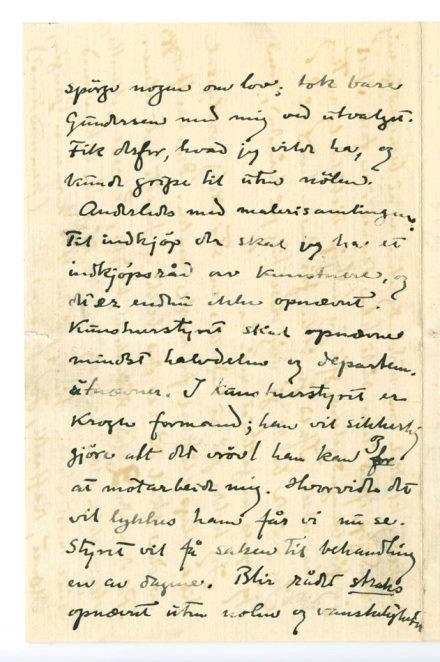 spörge nogen om lov; tok bare
Gundersen med mig ved utvalget.
Fik derfor, hvad jeg vilde ha, og
kunde gripe til uten nölen.
Anderledes med malerisamlingen.
Til indkjöp der skal jeg ha et
indkjöpsråd av kunstnere, og
det er endnu ikke opnævnt.
Kunstnerstyret skal opnævne
mindst halvdelen og departem.
utnævner. I kunstnerstyret er
Krogh formand; han vil sikkerlig
gjöre alt det vrövl han kan og for
at motarbeide mig. Hvorvidt det
vil lykkes ham får vi nu se.
Styret vil få saken til behandling
en av dagene. Blir rådet straks
opnævnt uten nolen og vanskeligheter